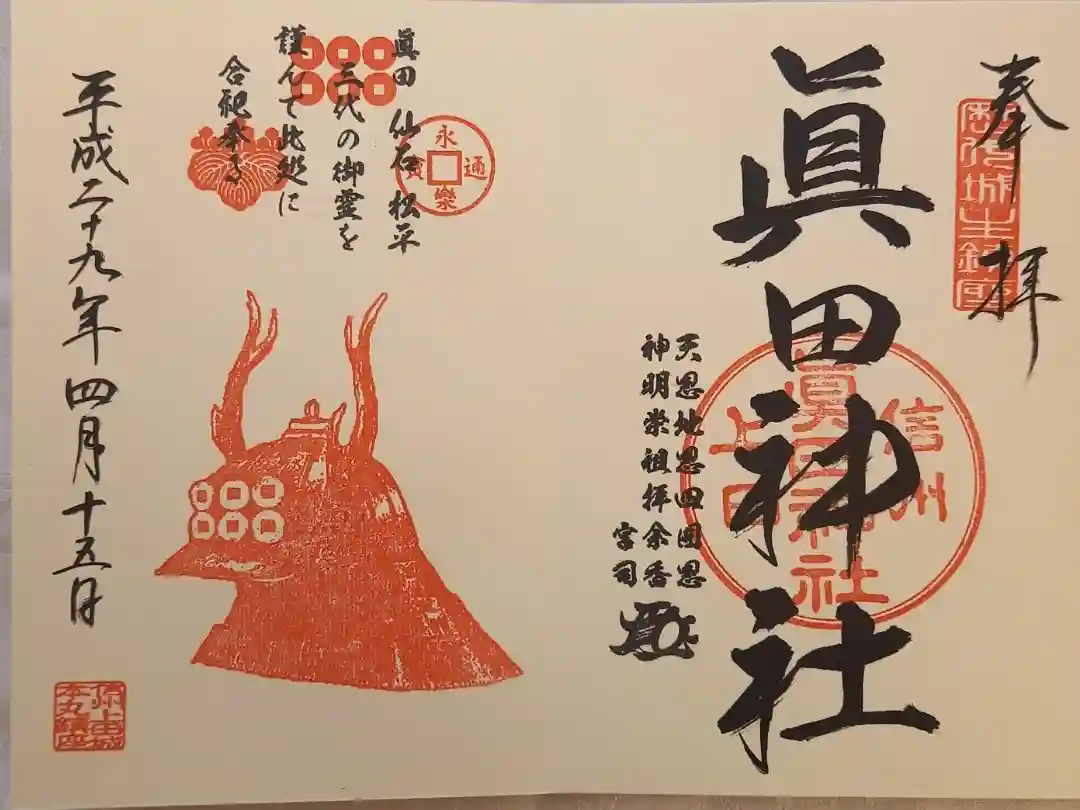 奉拝
歴代城主鎮座
眞田神社
信州
眞田神社
上田
天恩地恩四囲恩
神明崇祖拝余香
宮司
眞田 仙石 松平
三代の御霊を
謹んで此処に
合祀奉る
永樂通寳
平成二十九年四月十五日
本丸鎮座